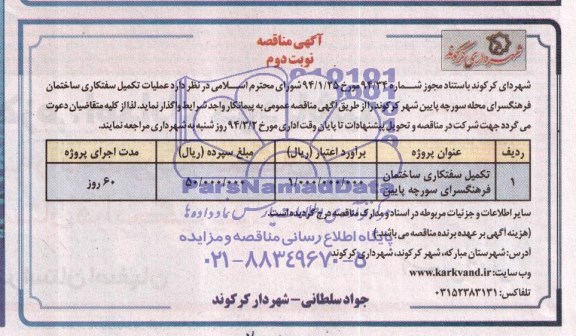 شهرداری کرکوند
آگهی مناقصه
نوبت دوم
شهردای کرکوند باستناد مجوز شماره ۹۴/۳۴ مورخ ۹۴/۱/۲۵ شورای محترم اسلامی در نظر دارد عملیات تکمیل سفتکاری ساختمان
فرهنگسرای محله سورچه پایین شهر کرکوند را از طریق آگهی مناقصه عمومی به پیمانکار واجد شرایط واگذار نماید. لذا از کلیه متقاضیان دعوت
می گردد جهت شرکت در مناقصه و تحویل پیشنهادات تا پایان وقت اداری مورخ ۹۴/۳/۲ روز شنبه به شهرداری مراجعه نمایند.
ردیف عنوان پروژه برآورد اعتبار (ریال) مبلغ سپرده (ریال) مدت اجرای پروژه
۱ تکمیل سفتکاری ساختمان فرهنگسرای سورچه پایین ۱/۰۰۰/۰۰۰/۰۰۰ ۵۰/۰۰۰/۰۰۰ ۶۰ روز
سایر اطلاعات و جزئیات مربوطه در اسناد و مدارک مناقصه درج گردیده است.
(هزینه آگهی بر عهده برنده مناقصه می باشد.)
آدرس: شهرستان مبارکه، شهر کرکوند، شهرداری کرکوند
وب سایت: www.karkvand.ir
تلفاکس: ۰۳۱۵۲۳۸۳۱۳۱
جواد سلطانی - شهردار کرکوند
ParsNamadData
پایگاه اطلاع رسانی مناقصه و مزایده
۰۲۱-۸۸۳۴۹۶۷۰-۵